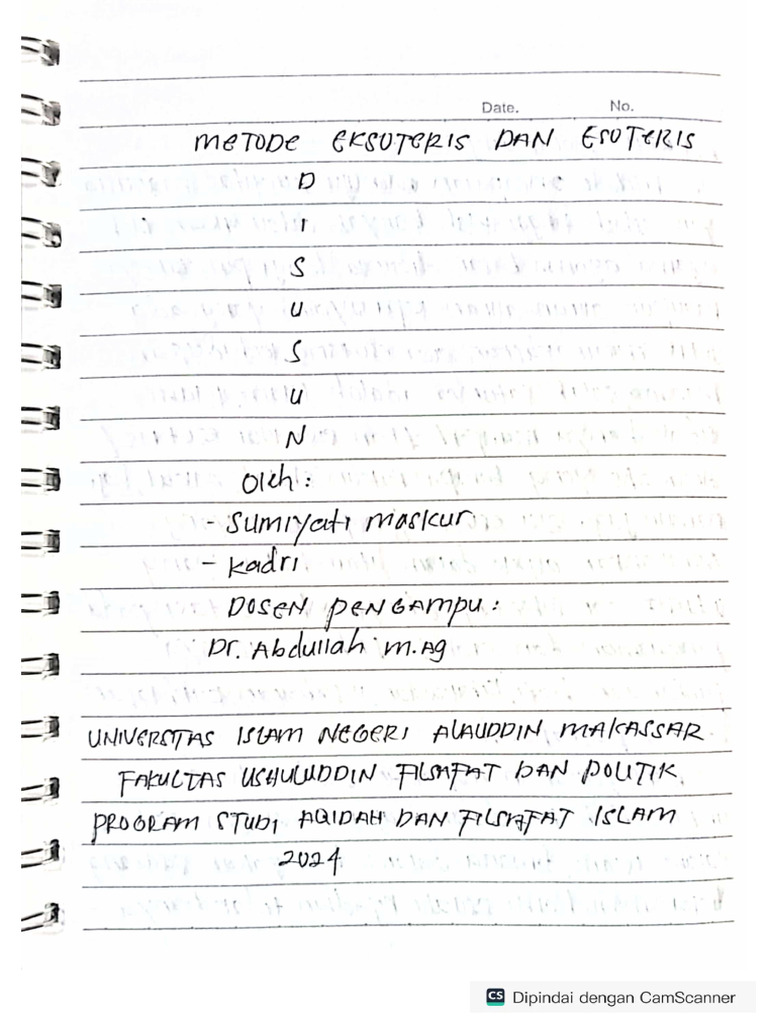 Date. No.
METODE EKSOTERIS DAN ESOTERIS
D
I
S
U
S
U
N
Oleh:
- Sumiyati maskur
- Kadri
DOSEN PENGAMPU:
Dr. Abdullah M.Ag
UNIVERSITAS ISLAM NEGERI ALAUDDIN MAKASSAR
FAKULTAS USHULUDDIN FILSAFAT DAN POLITIK
PROGRAM STUDI AQIDAH DAN FILSAFAT ISLAM
2024
CS Dipindai dengan CamScanner